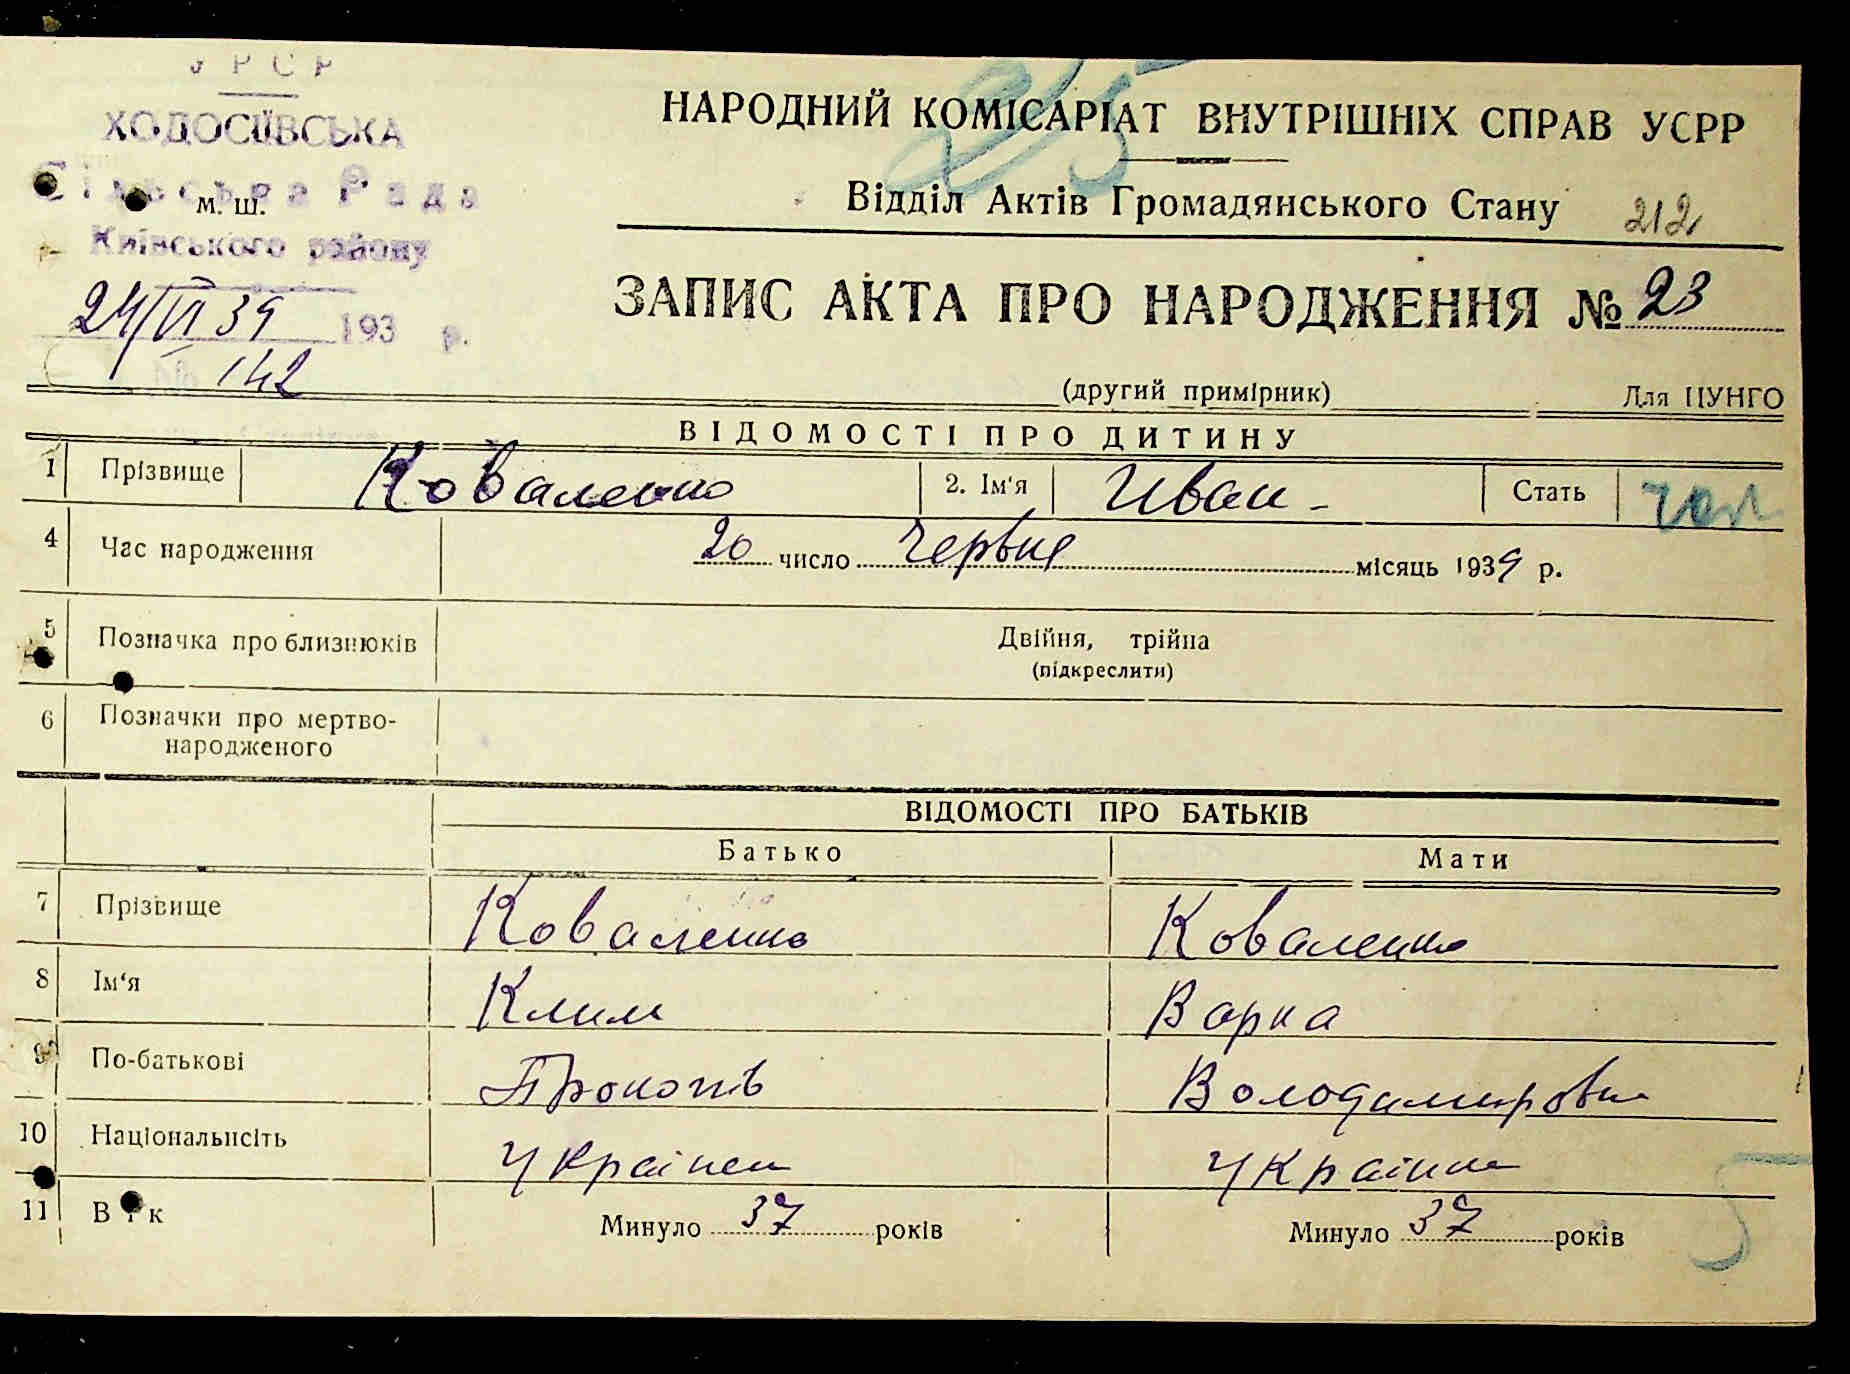 УРСР
ХОДОСІЇВСЬКА
Сільська Рада
М. Ш.
Київського району
24/VI 39 193 р.
142
215
НАРОДНИЙ КОМІСАРІАТ ВНУТРІШНІХ СПРАВ УСРР
Відділ Актів Громадянського Стану 212
ЗАПИС АКТА ПРО НАРОДЖЕННЯ № 23
(другий примірник) Для ЦУНГО
ВІДОМОСТІ ПРО ДИТИНУ
1 Прізвище Коваленко 2. Ім'я Иван - Стать чол
4 Час народження 20 число Червня місяць 1939 р.
5 Позначка про близнюків Двійня, трійна
(підкреслити)
6 Позначки про мертво-
народженого
ВІДОМОСТІ ПРО БАТЬКІВ
Батько Мати
7 Прізвище Коваленко Коваленко
8 Ім'я Клим Варка
9 По-батькові Прокопів Володимировна
10 Національнсіть Українец Українка
11 Вік Минуло 37 років Минуло 37 років
5